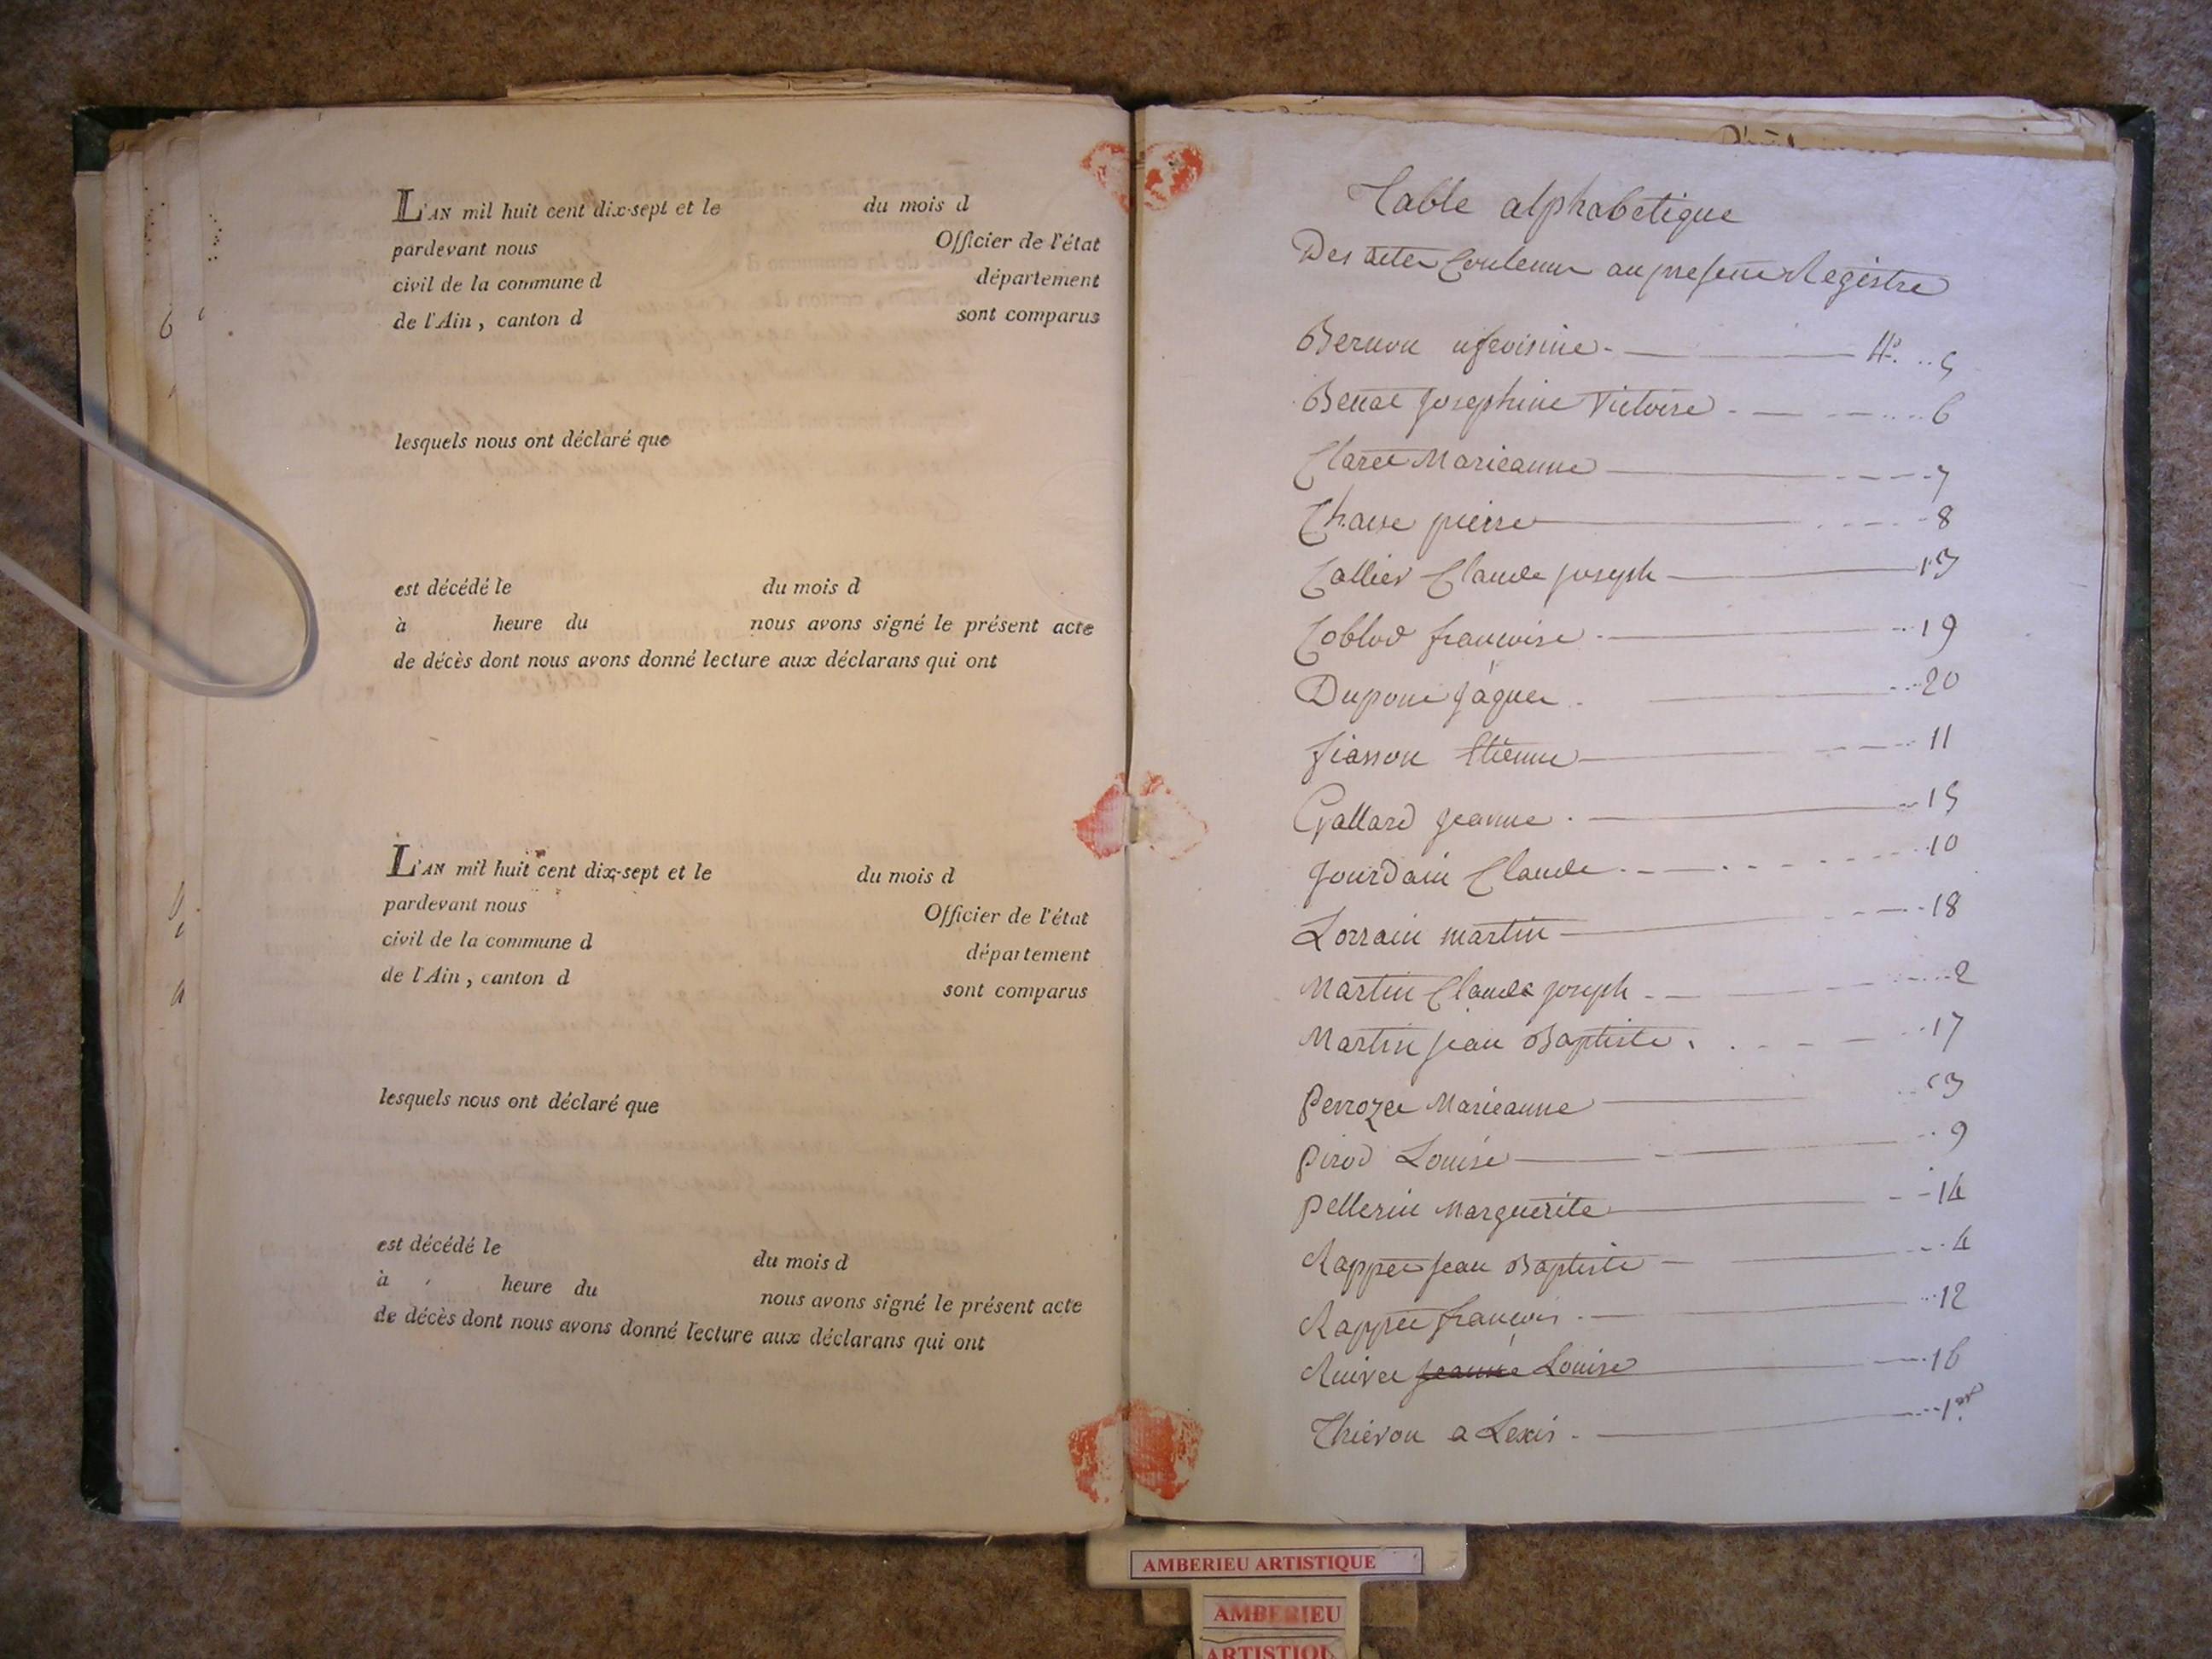 L'AN mil huit cent dix-sept et le du mois d
pardevant nous Officier de l'état
civil de la commune d département
de l'Ain, canton d sont comparus
lesquels nous ont déclaré que
est décédé le du mois d
à heure du nous avons signé le présent acte
de décès dont nous avons donné lecture aux déclarans qui ont
L'AN mil huit cent dix-sept et le du mois d
pardevant nous Officier de l'état
civil de la commune d département
de l'Ain, canton d sont comparus
lesquels nous ont déclaré que
est décédé le du mois d
à heure du nous avons signé le présent acte
de décès dont nous avons donné lecture aux déclarans qui ont
Table alphabetique
Des actes Contenus au present Registre
Bernon 5
Josephine Victoire 6
Claret Marieanne 7
pierre 8
Callier Claude joseph 13
Coblod francoise 19
Dupont jáques 20
fiasson Etienne 11
Gallard jeanne 15
jourdain Claude 10
Lorrain martin 18
Martin Claude joseph 2
Martin jean Baptiste 17
Perrozet Marieanne 3
pirod Louise 9
pellerin Marguerite 14
Rappet jean Baptiste 4
Rappet francois 12
Ruivet jeanne Louise 16
Thievon a Lexis 1er
AMBERIEU ARTISTIQUE
AMBERIEU